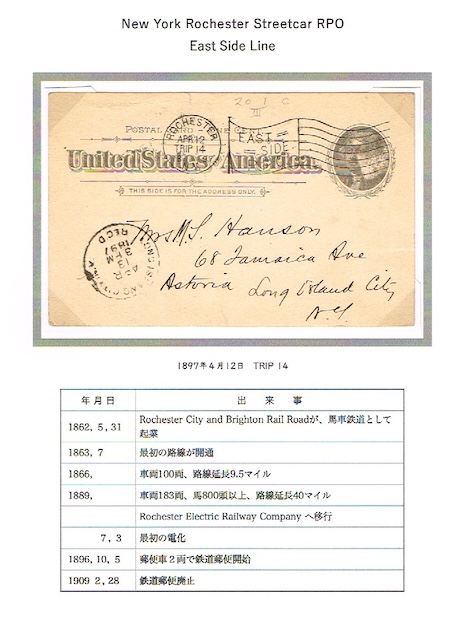 New York Rochester Streetcar RPO
East Side Line
20 1 C
III
POSTAL CARD – ONE CENT
ROCHESTER
APR 12
TRIP 14
EAST
SIDE
United States America.
THIS SIDE IS FOR THE ADDRESS ONLY.
Mrs M. S. Hanson
68 Jamaica Ave
Astoria Long Island City
N.Y.
LONG ISLAND CITY
APR
13
3 PM
1897
REC'D
1897年4月12日 TRIP 14
年月日 出来事
1862, 5, 31 Rochester City and Brighton Rail Roadが、馬車鉄道として
起業
1863, 7 最初の路線が開通
1866, 車両100両、路線延長9.5マイル
1889, 車両183両、馬800頭以上、路線延長40マイル
Rochester Electric Railway Company へ移行
7, 3 最初の電化
1896, 10, 5 郵便車2両で鉄道郵便開始
1909 2, 28 鉄道郵便廃止